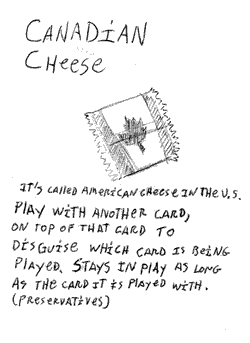 CANADIAN
CHEESE
IT'S CALLED AMERICAN CHEESE IN THE U.S.
PLAY WITH ANOTHER CARD,
ON TOP OF THAT CARD TO
DISGUISE WHICH CARD IS BEING
PLAYED. STAYS IN PLAY AS LONG
AS THE CARD IT IS PLAYED WITH.
(PRESERVATIVES)